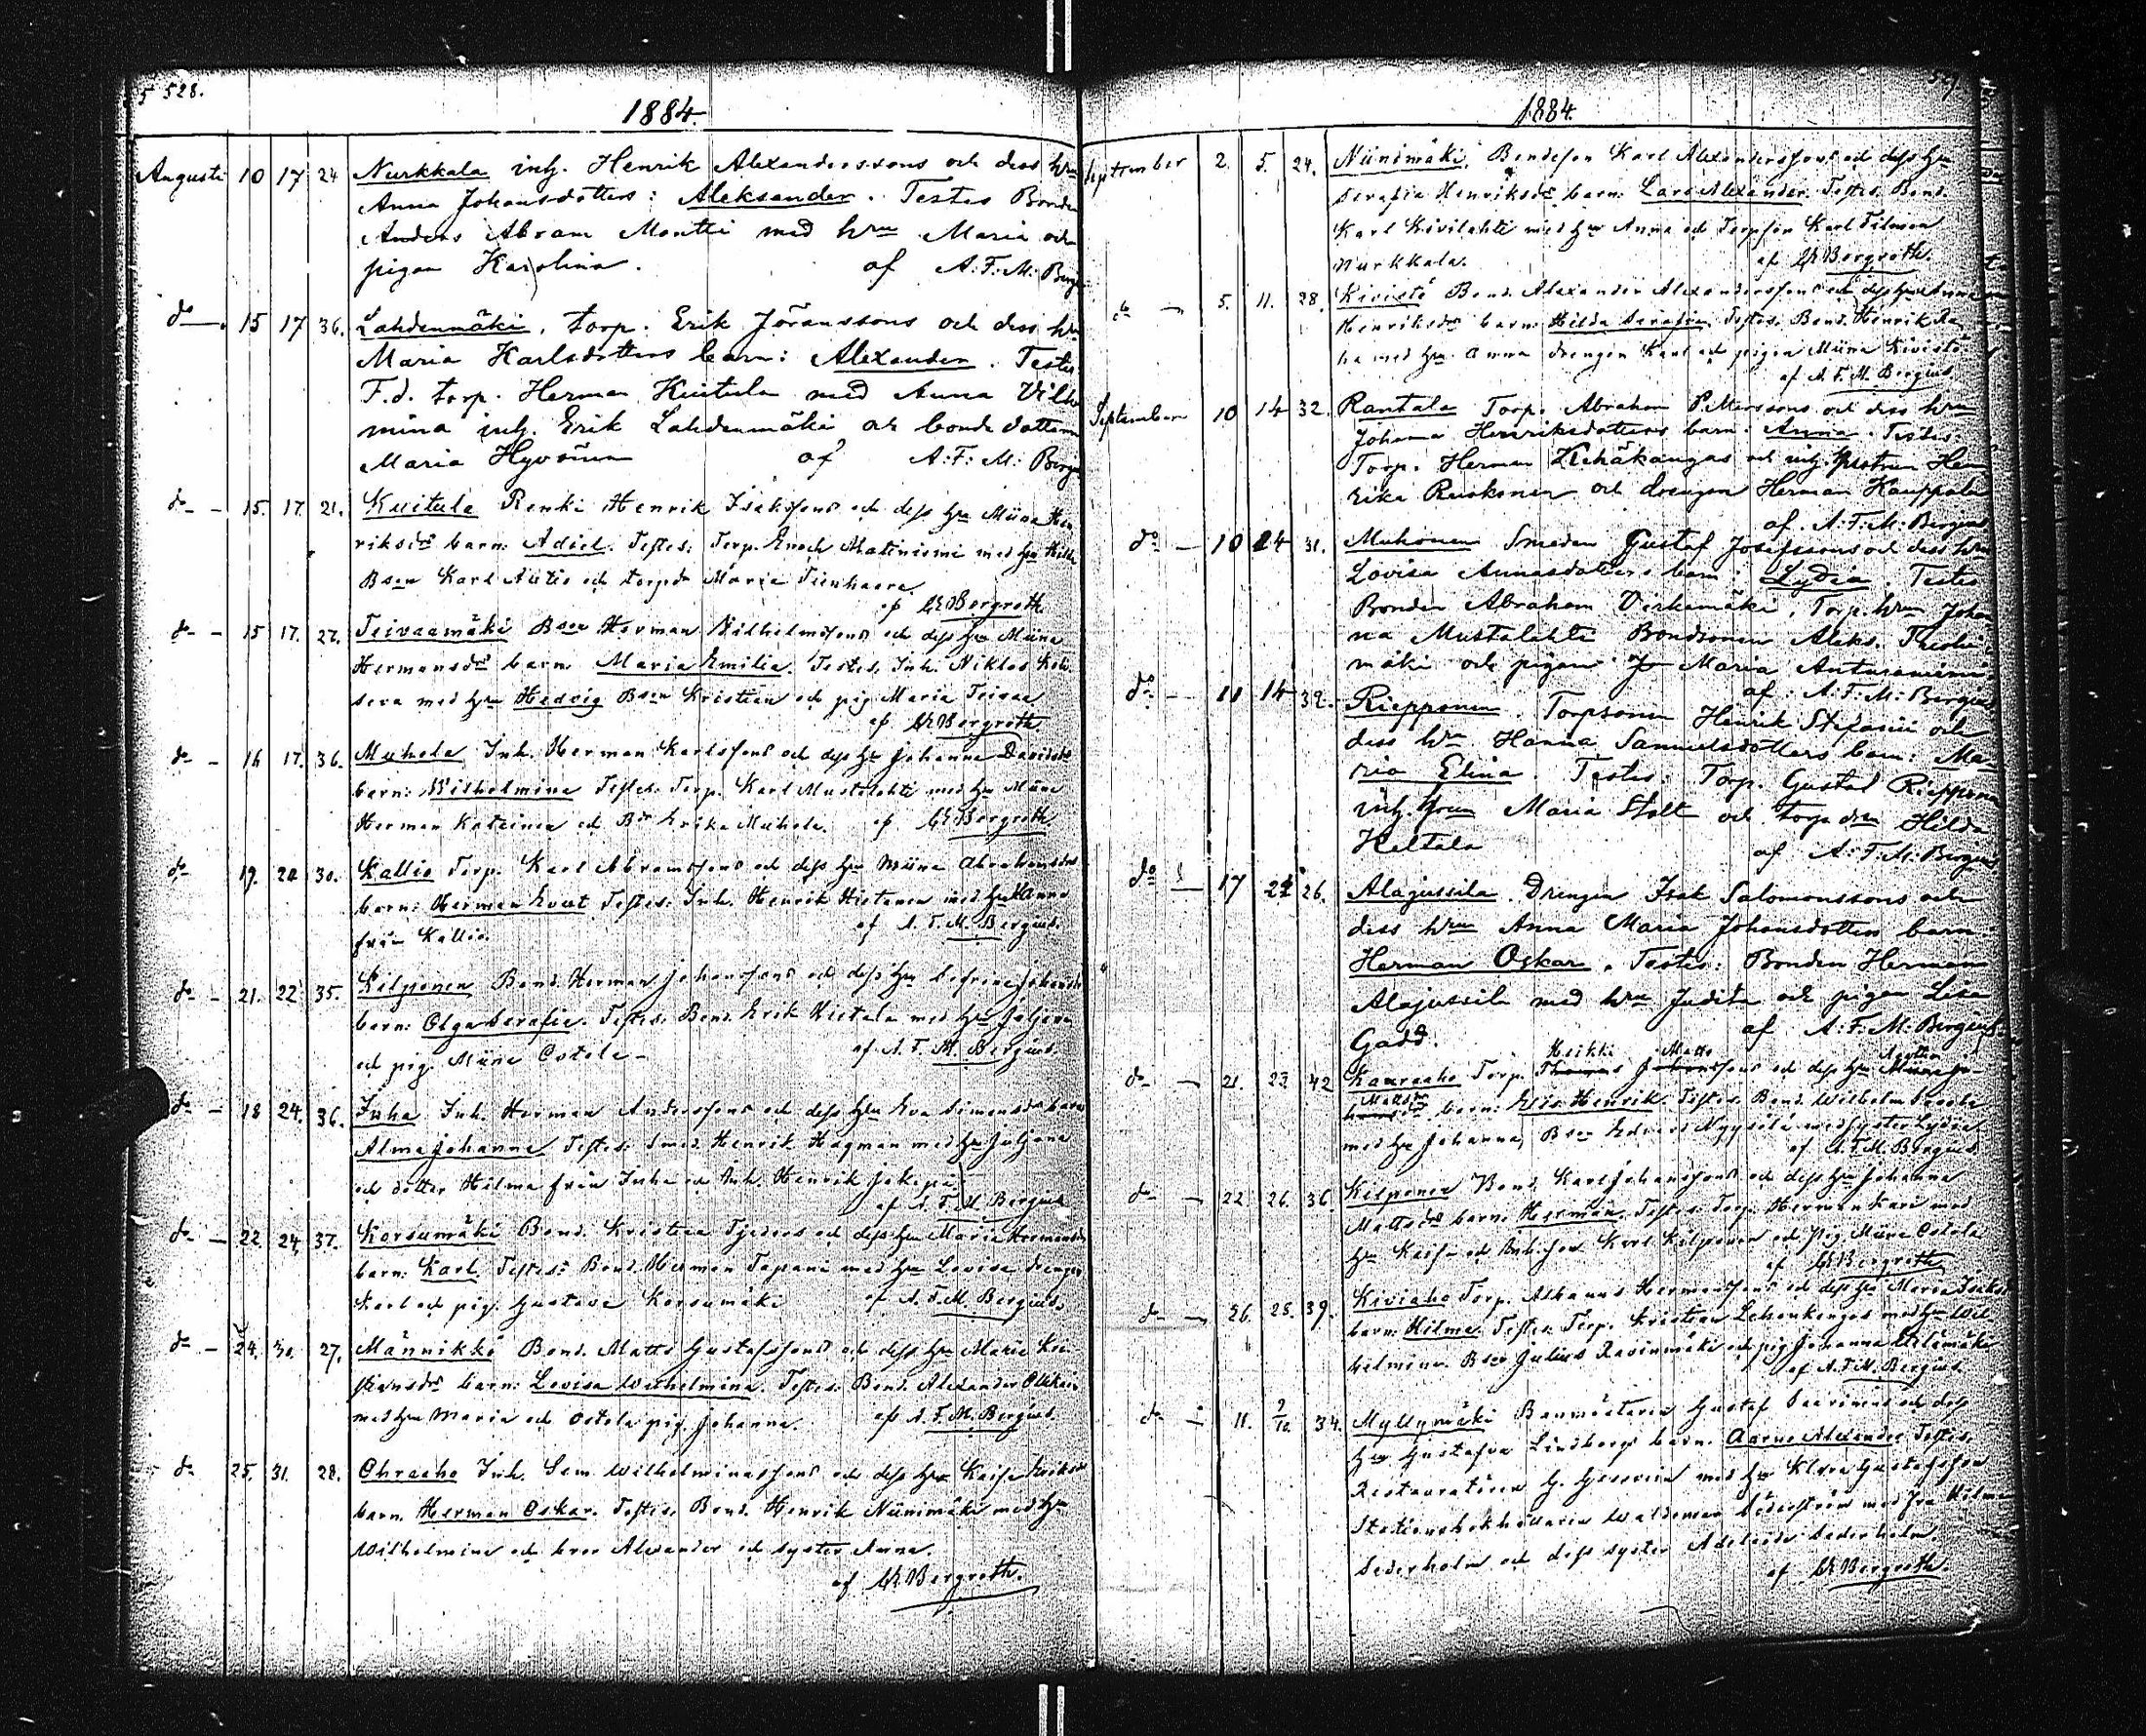 528.
1884.
Augusti 10 17 24 Nurkkala inh. Henrik Alexanderssons och dess hru
Anna Johansdotters: Aleksander. Testes Bonden
Anders Abram Montti med hru Maria och
pigan Karolina. af A. F. M. Berg
do 15 17 36. Lahdenmäki, torp. Erik Jöranssons och dess hru
Maria Karlsdotters barn: Alexander. Testes
F.d. torp. Herman Kuitula med Anna Vilhel
mina inh. Erik Lahdenmäki och bondedottern
Maria Hyvönen af A: F: M: Berg
do 15. 17. 21. Kuitula Renki Henrik Isakssons och dess hru Miina Hen
riksdr barn: Testes: Torp. Enoch Matiniemi med hru
Bson Karl och torpdr Maria
af Bergroth
do 15 17. 27. Teivaamäki Bson Herman Wilhelmssons och dess hru Miina
Hermansdr barn: Maria Emilia. Testes. Inh. Niklas
med hru Hedvig Bson Kristian och pig. Maria
af Bergroth
do 16 17. 36. Muhola Inh. Herman Karlssons och dess hru Johanna Davidsdr
barn: Wilhelmina Testes. Torp. Karl Mustalahti med hru Miina
Herman och Bdr Erika Muhola. af Bergroth
do 19. 20 30. Kallio Torp. Karl Abramssons och dess hru Miina Abrahamsdr
barn: Herman Testes: Inh. Henrik Hietanen med hru Anna
från Kallio. af A. F. M. Bergius.
do 21. 22 35. Kilponen Bond. Herman Johanssons och dess hru
barn: Olga Serafia. Testes. Bond. Erik Hietala med hru
och pig. Miina Ostola af A. F. M. Bergius.
do 18 24. 36. Inha Inh. Herman Anderssons och dess hru Eva Simonsdr barn
Alma Johanna. Testes: Smed. Henrik Hagman med hru Juljana
och dotter Hilma från Inha och Inh. Henrik
af A. F. M. Bergius
do 22. 24. 37. Korsumäki Bond. Kristian och dess hru Maria Hermansdr
barn: Karl. Testes: Bond. Herman Tapani med hru Lovisa drengen
Karl och pig. Gustava Korsumäki af A. F. M. Bergius.
do 24. 30. 27. Männikkö Bond. Matts Gustafssons och dess hru Maria Kri-
stiansdr barn: Lovisa Wilhelmina. Testes: Bond. Alexander
med hru Maria och Ostola pig. Johanna. af A. F. M. Bergius.
do 25. 31. 28. Ohraaho Inh. Sam. Wilhelminassons och dess hru Kaisa Eriksdr
barn. Herman Oskar. Testes. Bond. Henrik Niinimäki med hru
Wilhelmina och bror Alexander och syster Anna.
af Bergroth.
1884.
September 2. 5. 24. Niinimäki, Bondeson Karl Alexanderssons och dess hru
Serafia Henriksdr barn: Lars Alexander. Testes. Bond.
Karl Kivilahti med hru Anna och Torpson Karl
Nurkkala. af Bergroth.
do 5. 11. 28. Kivistö Bond. Alexander Alexanderssons och dess hru Anna
Henriksdr barn: Hilda Serafia. Testes. Bond. Henrik
med hru Anna drengen Karl och pigan Miina Kivistö
af A. F. M. Bergius
September 10 14 32. Rantala Torp. Abraham Petterssons och dess hru
Johanna Henriksdotters barn: Anna. Testes:
Torp. Herman Kehäkangas och inh. Hen
rika Ruskonen och drengen Herman Kauppala
af A: F: M: Bergius
do 10 14 31. Muhonen Smeden Gustaf Josefssons och dess hru
Lovisa Annasdotters barn: Lydia. Testes
Bonden Abraham Virkamäki, Torp. hru Johan
na Mustalahti Bondsonen Aleks.
mäki och pigan Maria Anturaniemi
af A: F: M: Bergius
do 11 14 32. Riepponen. Torpsonen Henrik Stefanii och
dess hru Hanna Samuelsdotters barn: Ma-
ria Elina. Testes: Torp. Gustaf Riepponen
inh. hrun Maria Stolt och torp. dr Hilda
Keltala af A: F: M: Bergius
do 17 21 26. Alajussila. Drengen Isak Salomonssons och
dess hru Anna Maria Johansdotters barn
Herman Oskar. Testes: Bonden Herman
Alajussila med hru Judita och pigan Lisa
Gadd. af A: F: M: Bergius
Heikki Matts
do 21. 23 42 Kauraaho Torp. Thomas Johanssons och dess hru
Mattsdr barn: Elis Henrik. Testes. Bond. Wilhelm
med hru Johanna, Bson Edvard Nyyssölä med syster Lydia
af A. F. M. Bergius
do 22. 26. 36. Kilponen Bond. Karl Johanssons och dess hru Johanna
Mattsdr barn: Herman. Testes. Torp. Herman Kari med
hru Kaisa och Karl Kilponen och Pig. Miina Ostola
af Bergroth
do 26. 28. 39. Kiviaho Torp. Hermanssons och dess hru Maria Isaksdr
barn: Hilma. Testes: Torp. Kristian Lehonkangas med hru Wil
helmina. Bson Julius Ravinmäki och pig. Johanna
af A. F. M. Bergius
do 11. 2/10. 34. Myllymäki Banmästaren Gustaf Saarinens och dess
hru Gustafva Lindbergs barn. Aarne Alexander. Testes.
Restauratören G. med hru Klara Gustafsson
Stationsbokhållaren Waldemar Söderström med Hilma
Sederholm och dess syster Adelaide Sederholm
af Bergroth.